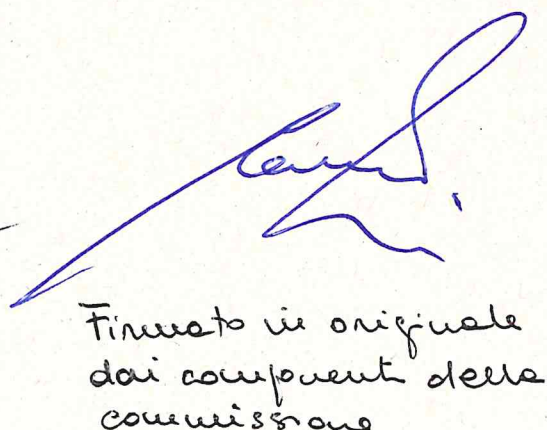 Firmato in originale
dai componenti della
commissione